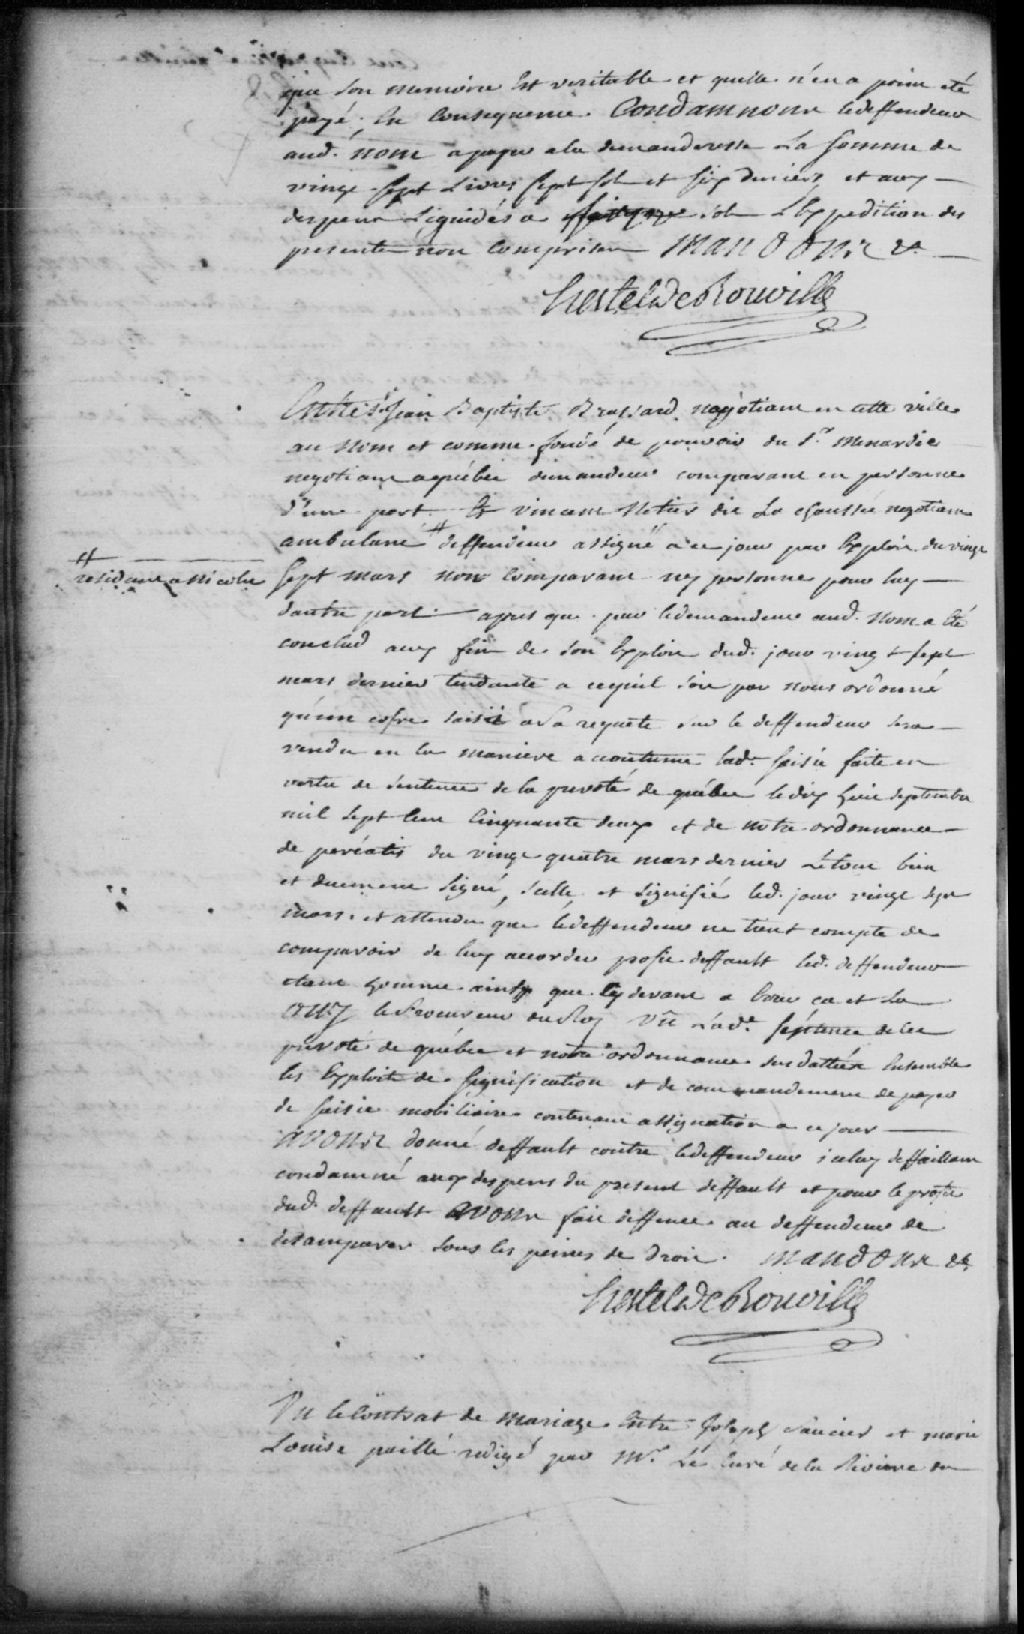 que son memoire Est veritable et quelle n'en a point eté
payé. En Consequence Condamnons ledeffendeur
aud. nom a payer ala demanderesse La somme de
vingt sept Livres sept sols et six deniers et aux
despens Liquidés a sols LExpedition des
presentes non Comprises Mandons &a
Hertel de Rouville
Entre Sr Jean Baptiste Brassard negotiant en cette ville
au nom et comme fondé de pouvoir du Sr menardie
negotiant aquébec demandeur comparant en personne
d'une part. Et vincent dit La chaussée negotiant
ambulant # deffendeur assigné a ce jour par Exploit du vingt
# residant a Nicolet
sept mars non Comparant ny personne pour luy
dautre part. apres que par ledemandeur aud. nom a été
conclud aux fin de son Exploit dud. jour vingt sept
mars dernier tendante a cequil soit par nous ordonné
qu'un cofre saisie a sa requete sur le deffendeur sera
vendu en la maniere accoutumé lad. saisie faite en
vertu de sentence de la prevoté de québec ledix huit septembre
mil sept Cent Cinquante deux et de notre ordonnance
de pareatis du vingt quatre mars dernier Letout bien
et duement signé, scellé et signifié led. jour vingt sept
mars. et attendu que ledeffendeur ne tient compte de
comparoir de luy accorder profit deffault led. deffendeur
etant homme ainsy que Cy devant a Courir ca et La
OUY le Procureur du Roy Vû Lade sentence de la
prevoté de québec et notre ordonnance susdattées Ensemble
les Exploit de signification et de commandement de payer
de saisie mobiliaire contenant assignation a ce jour
AVONS donné deffault contre ledeffendeur iceluy deffaillant
condamné aux despens du present deffault et pour le profit
dud. deffault avons fait deffence au deffendeur de
desamparer sous les peines de droit. Mandons &a
Hertel de Rouville
Vu le Contrat de mariage Entre Joseph saucier et marie
Louise paillé redigé par Mr. Le Curé de la Riviere du